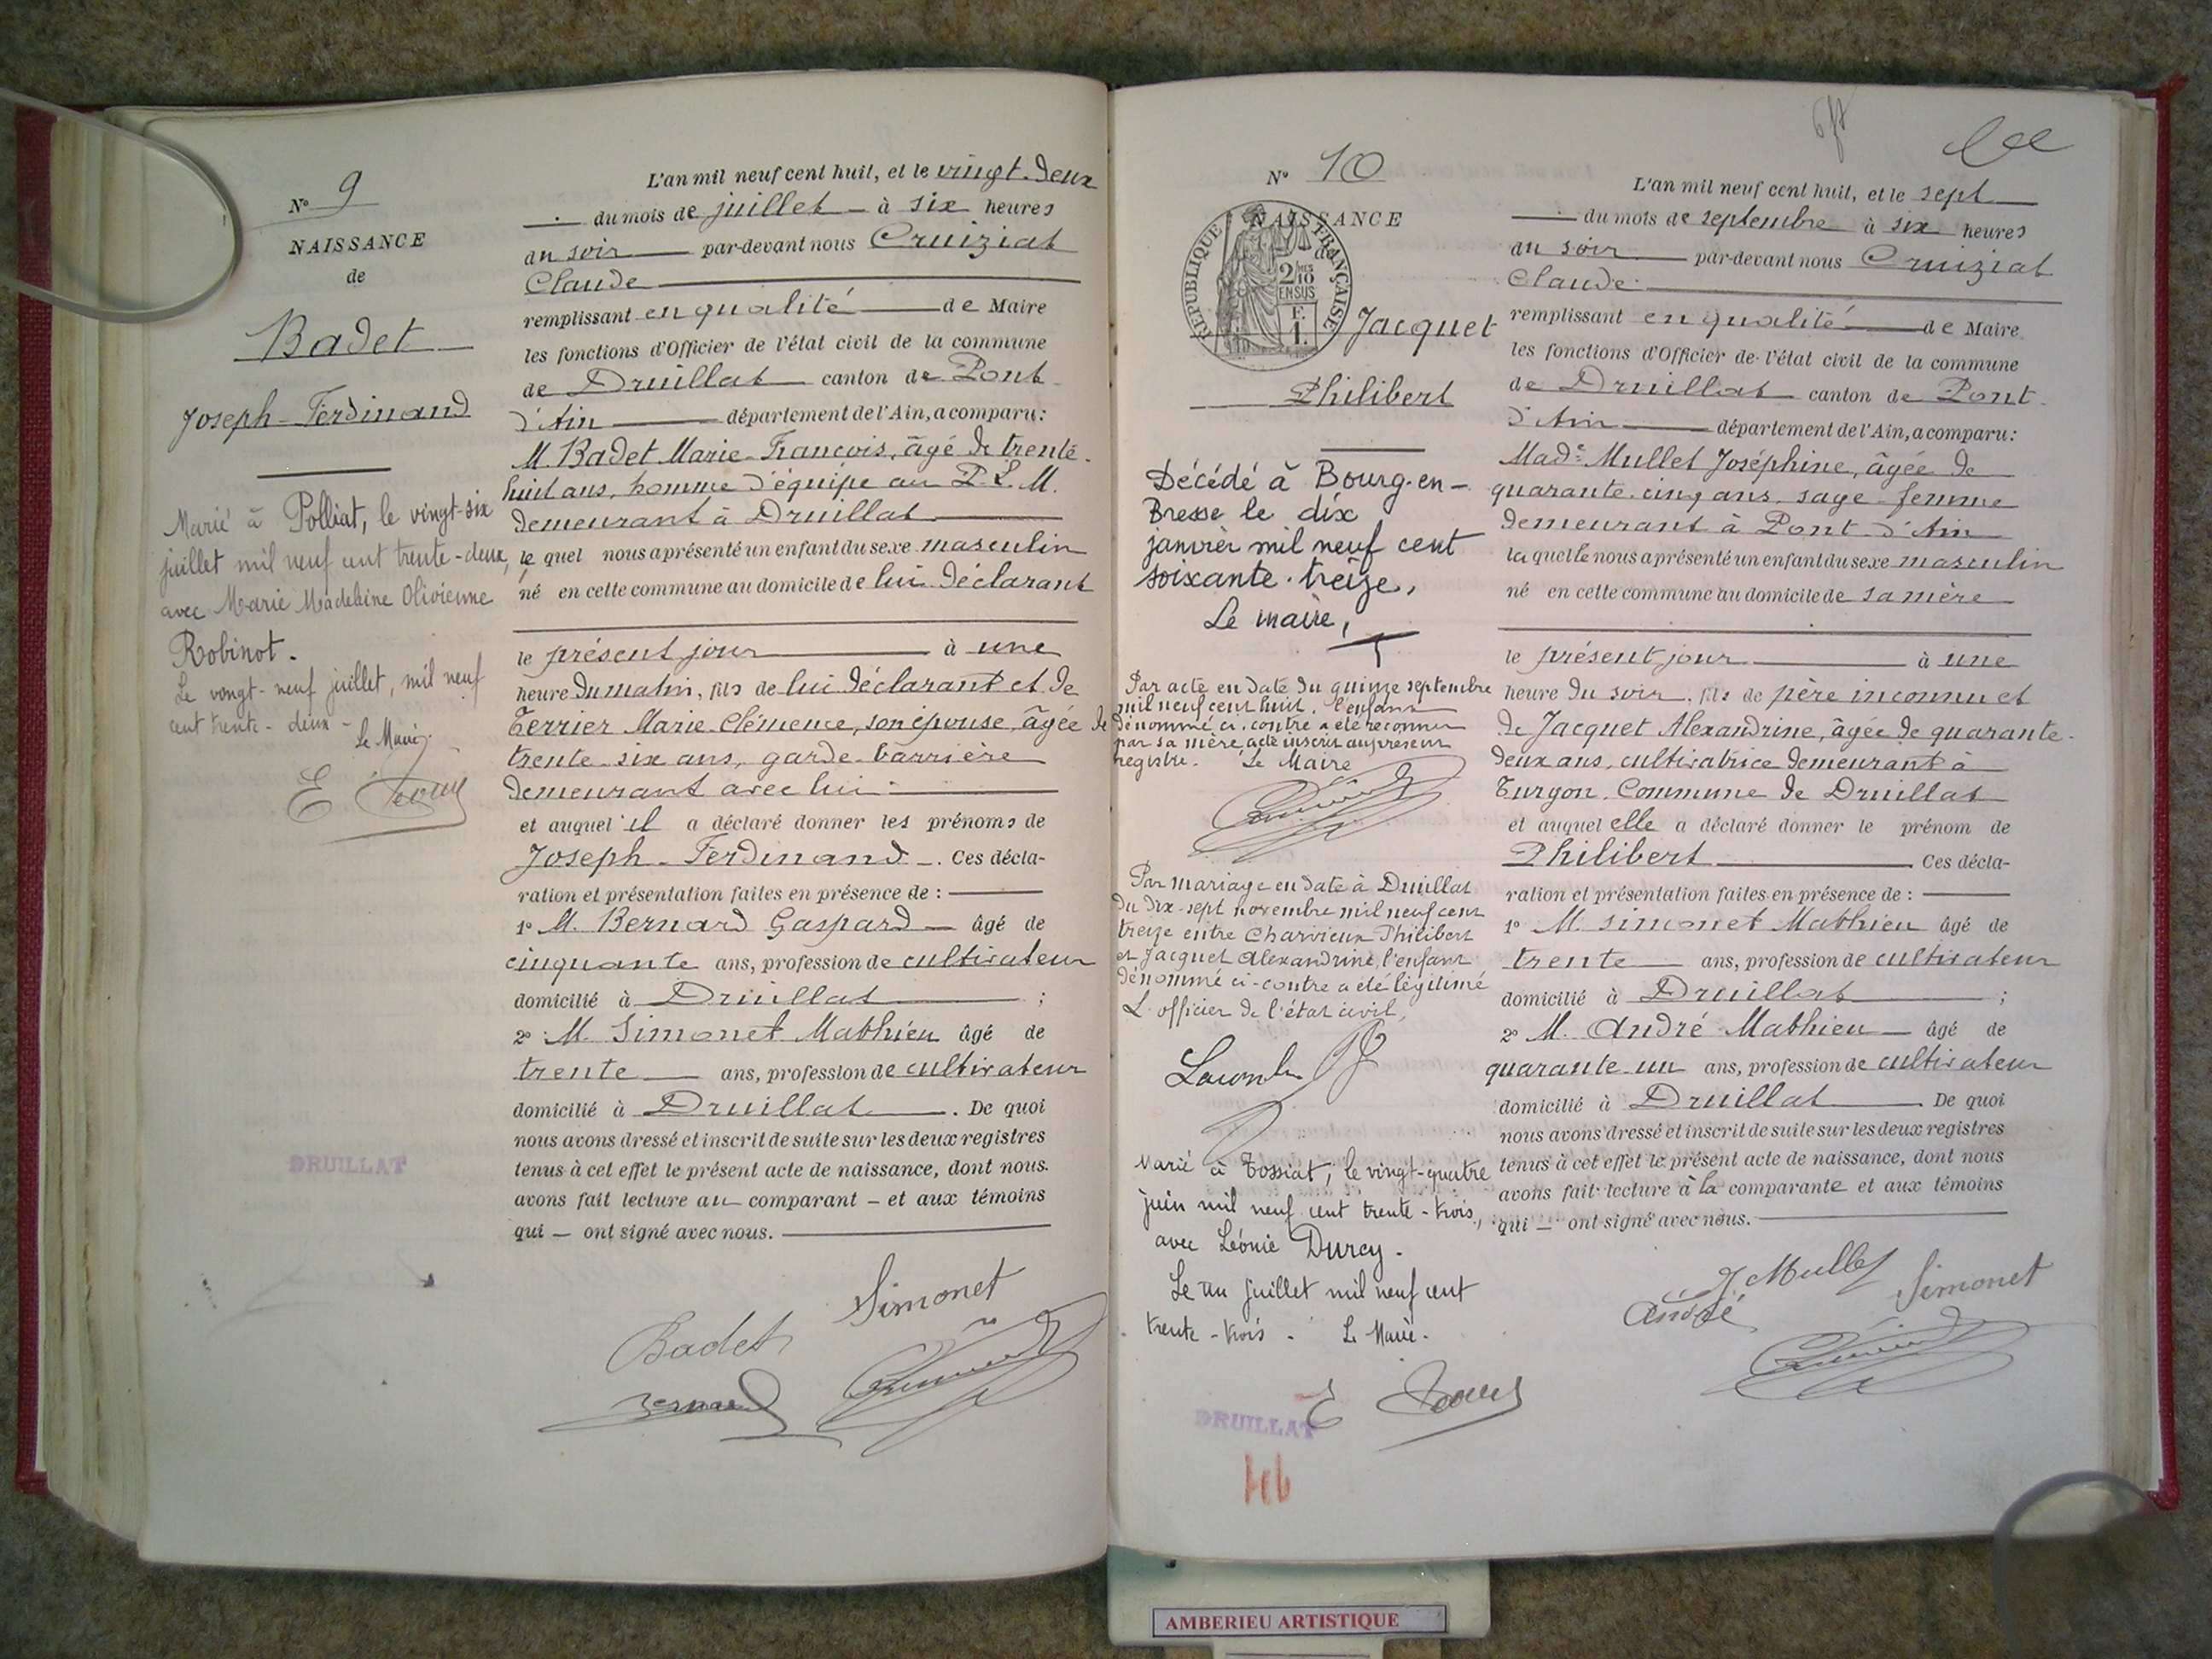 N° 9
NAISSANCE
de
Badet
Joseph-Ferdinand
Marié à Polliat, le vingt-six
juillet mil neuf cent trente-deux,
avec Marie Madeleine Olivienne
Robinot.
Le vingt-neuf juillet, mil neuf
cent trente-deux -
Le Maire.
DRUILLAT
L'an mil neuf cent huit, et le vingt-deux
du mois de juillet à six heures
du soir par-devant nous Cruiziat
Claude
remplissant en qualité de Maire
les fonctions d'Officier de l'état civil de la commune
de Druillat canton de Pont
d'Ain département de l'Ain, a comparu:
M. Badet Marie-François, âgé de trente-
huit ans, homme d'équipe au P. L. M.
demeurant à Druillat
le quel nous a présenté un enfant du sexe masculin
né en cette commune au domicile de lui déclarant
le présent jour à une
heure du matin, fils de lui déclarant et de
Terrier Marie Clémence, son épouse, âgée de
trente-six ans, garde-barrière
demeurant avec lui
et auquel il a déclaré donner les prénoms de
Joseph-Ferdinand. Ces décla-
ration et présentation faites en présence de :
1° M. Bernard Gaspard âgé de
cinquante ans, profession de cultivateur
domicilié à Druillat ;
2° M. Simonet Mathieu âgé de
trente ans, profession de cultivateur
domicilié à Druillat. De quoi
nous avons dressé et inscrit de suite sur les deux registres
tenus à cet effet le présent acte de naissance, dont nous
avons fait lecture au comparant - et aux témoins
qui - ont signé avec nous.
Simonet
Badet
Bernard
N° 10
NAISSANCE
de
REPUBLIQUE FRANÇAISE
2/10 EN SUS
F. 1.
Jacquet
Philibert
Décédé à Bourg-en-
Bresse le dix
janvier mil neuf cent
soixante-treize,
Le maire,
Par acte en date du quinze septembre
mil neuf cent huit, l'enfant
dénommé ci-contre a été reconnu
par sa mère, acte inscrit au présent
registre. Le Maire
Par mariage en date à Druillat
du dix-sept novembre mil neuf cent
treize entre Charvieux Philibert
et Jacquet Alexandrine, l'enfant
dénommé ci-contre a été légitimé
L'officier de l'état civil,
Marié à Tossiat, le vingt-quatre
juin mil neuf cent trente-trois,
avec Léonie Durcy.
Le un juillet mil neuf cent
trente-trois - Le Maire.
DRUILLAT
L'an mil neuf cent huit, et le sept
du mois de septembre à six heures
du soir par-devant nous Cruiziat
Claude
remplissant en qualité de Maire
les fonctions d'Officier de l'état civil de la commune
de Druillat canton de Pont
d'Ain département de l'Ain, a comparu:
Made Mullet Joséphine, âgée de
quarante-cinq ans, sage-femme
demeurant à Pont-d'Ain
la quelle nous a présenté un enfant du sexe masculin
né en cette commune au domicile de sa mère
le présent jour à une
heure du soir, fils de père inconnu et
de Jacquet Alexandrine, âgée de quarante-
deux ans, cultivatrice demeurant à
Turgon, Commune de Druillat
et auquel elle a déclaré donner le prénom de
Philibert Ces décla-
ration et présentation faites en présence de :
1° M. Simonet Mathieu âgé de
trente ans, profession de cultivateur
domicilié à Druillat ;
2° M. André Mathieu âgé de
quarante-un ans, profession de cultivateur
domicilié à Druillat De quoi
nous avons dressé et inscrit de suite sur les deux registres
tenus à cet effet le présent acte de naissance, dont nous
avons fait lecture à la comparante et aux témoins
qui - ont signé avec nous.
J. Mullet
Simonet
André
AMBERIEU ARTISTIQUE